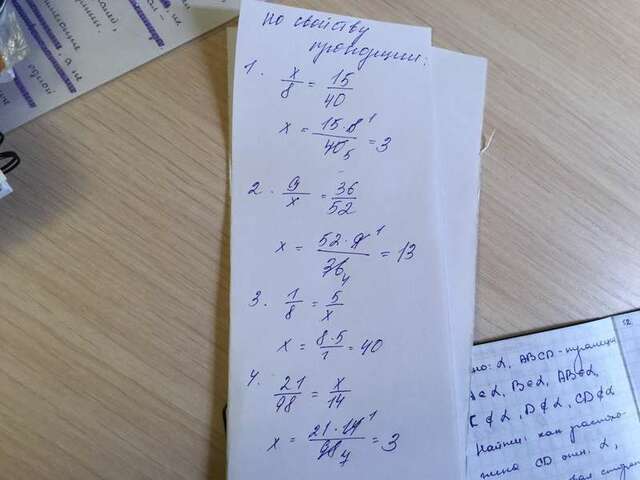 по свойству
пропорции:
1. x/8 = 15/40
x = 15·8/40 = 3
2. 9/x = 36/52
x = 52·9/36 = 13
3. 1/8 = 5/x
x = 8·5/1 = 40
4. 21/98 = x/14
x = 21·14/98 = 3
но: α, ABCD-трапеция
A∈α, B∈α, AB∈α,
C∉α, D∉α, CD∉α
Найти: как располо-
жена CD отн. α,
одной
а не